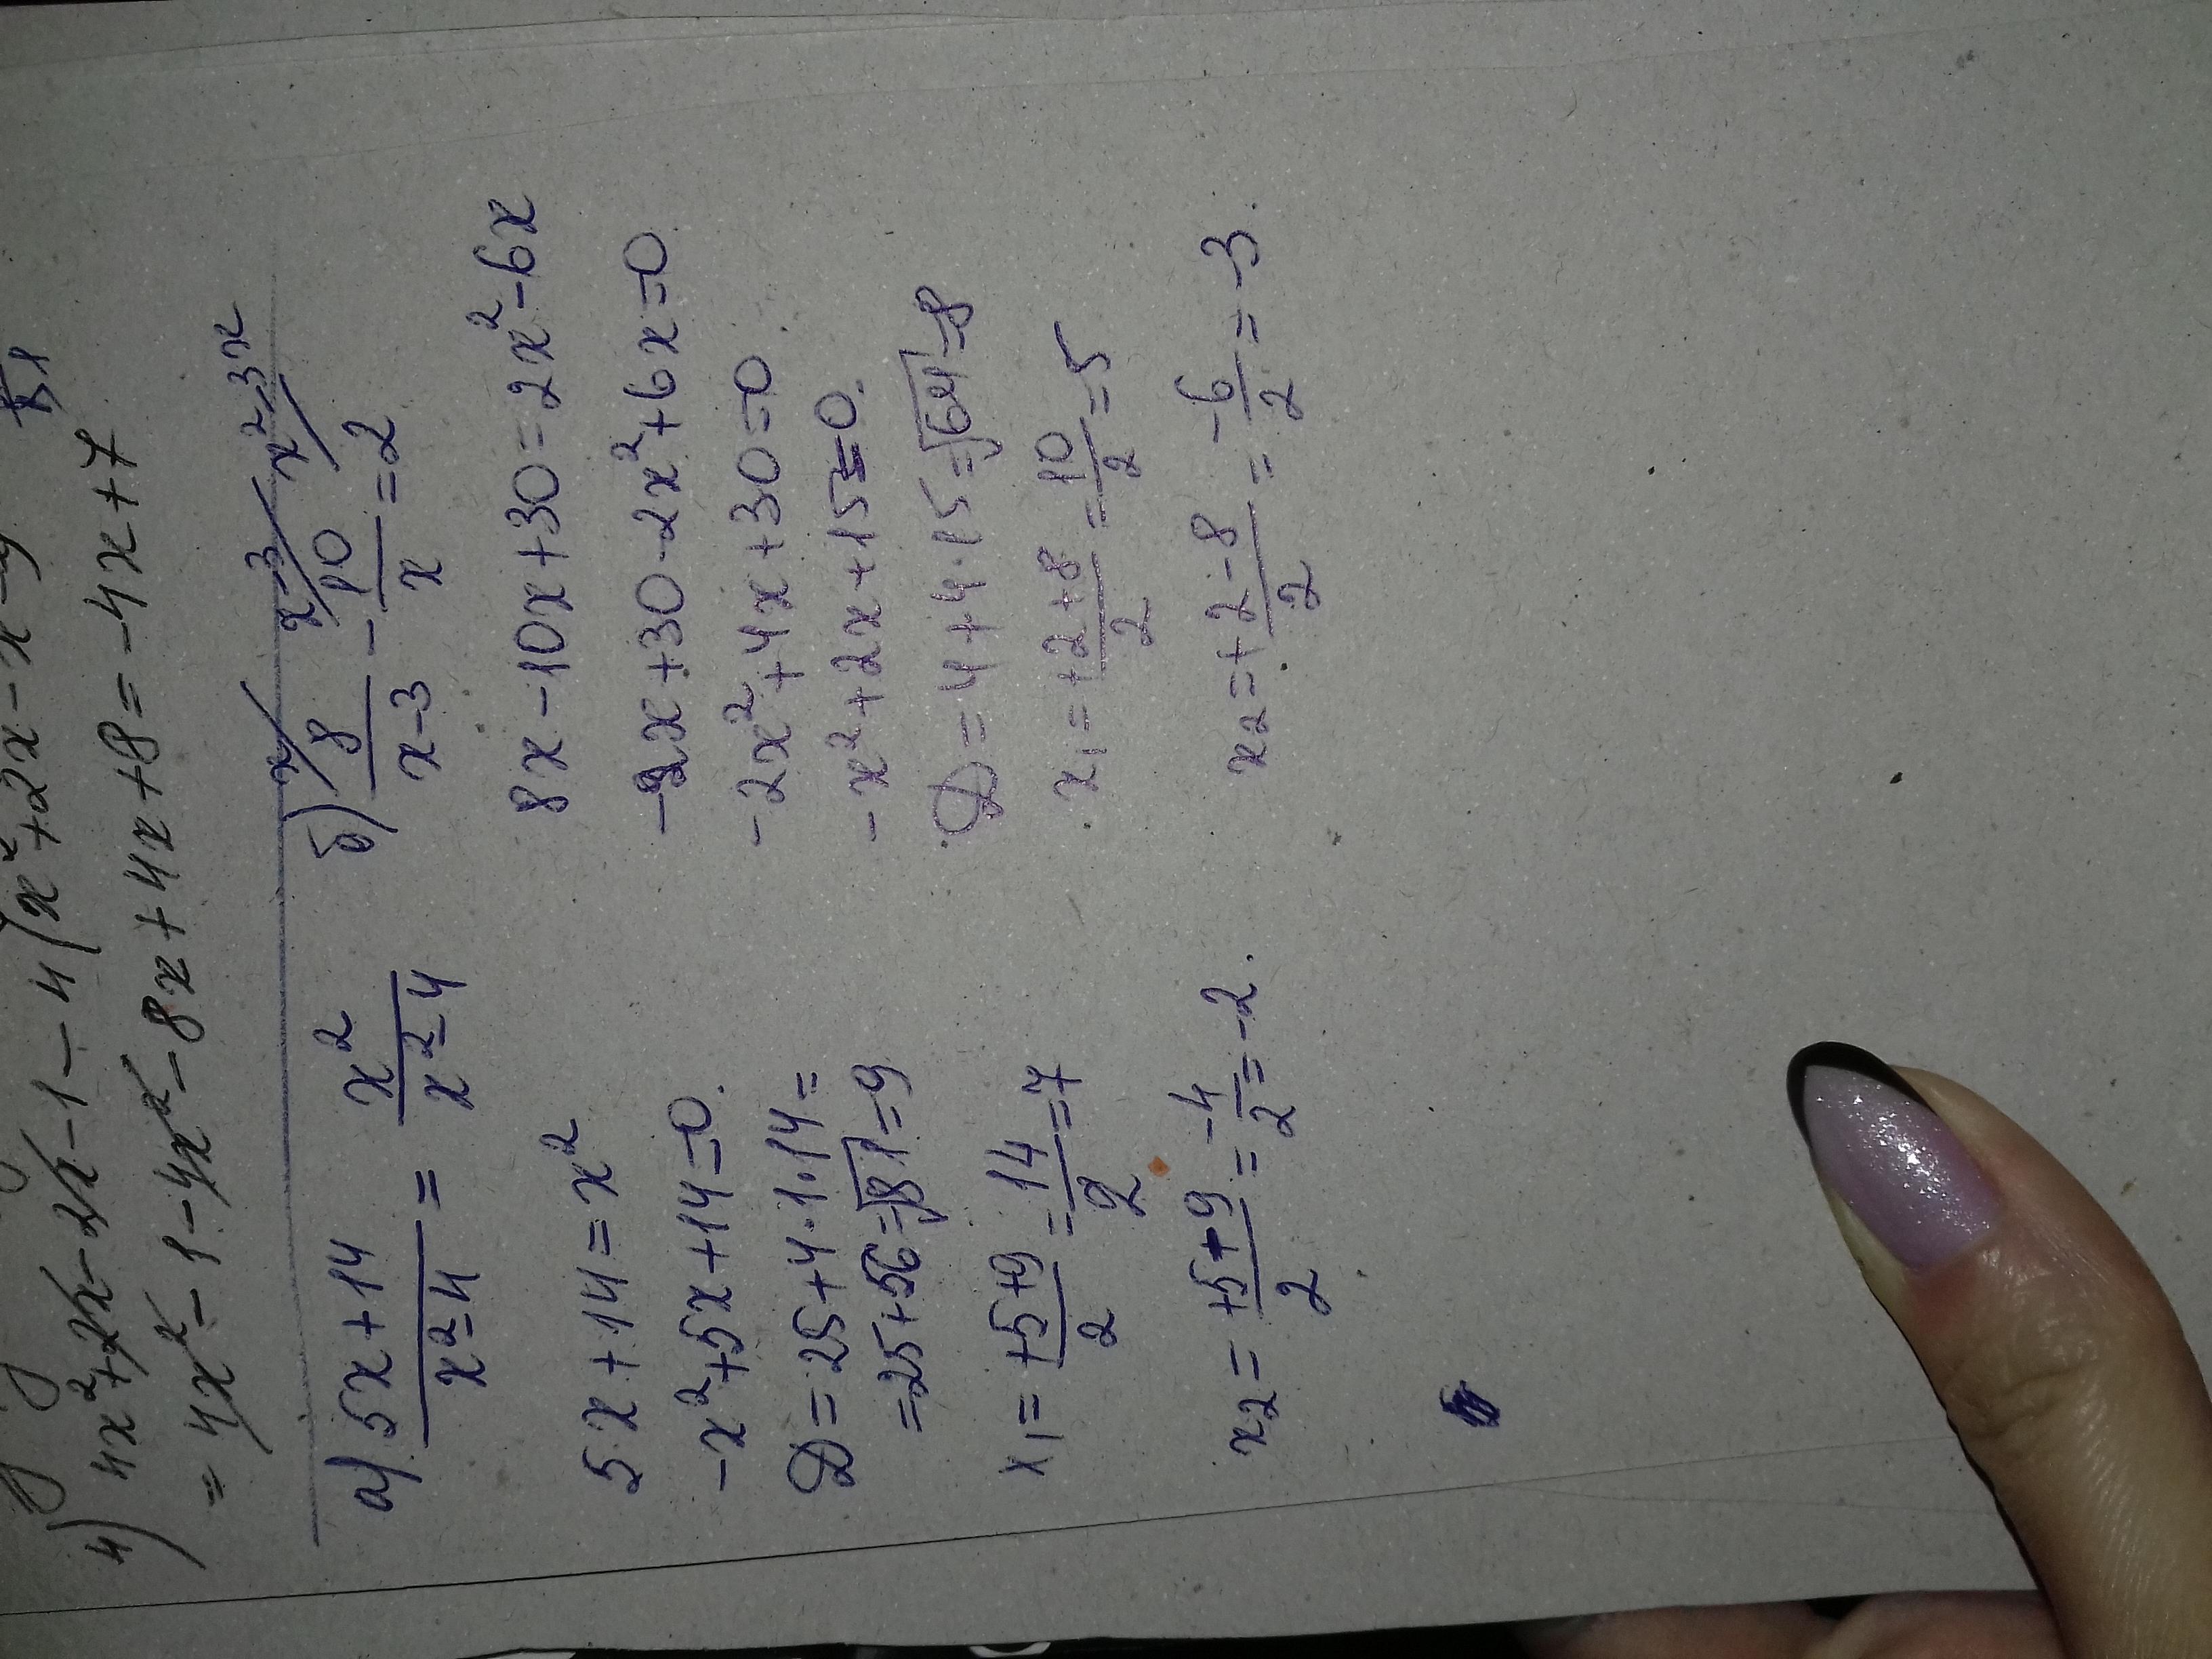 4) 4x²+2x-2x-1-4(x²+2x-x-
= 4x²-1-4x²-8x+4x+8=-4x+7
а) 5x+14/x²-4 = x²/x²-4
5x+14=x²
-x²+5x+14=0.
D=25+4·1·14=
=25+56=√81=9
x₁=+5+9/2=14/2=7
x₂=+5-9/2=-4/2=-2.
б) x/ 8/x-3 - x-3/ 10/x =2 x²-3x/
8x-10x+30=2x²-6x
-2x+30-2x²+6x=0.
-2x²+4x+30=0
-x²+2x+15=0.
D=4+4·15=√64=8
x₁=+2+8/2=10/2=5
x₂=+2-8/2=-6/2=-3.